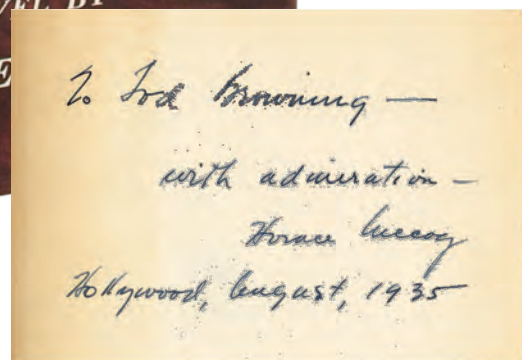 VEL BY
E
To Tod Browning —
with admiration —
Horace McCoy
Hollywood, August, 1935